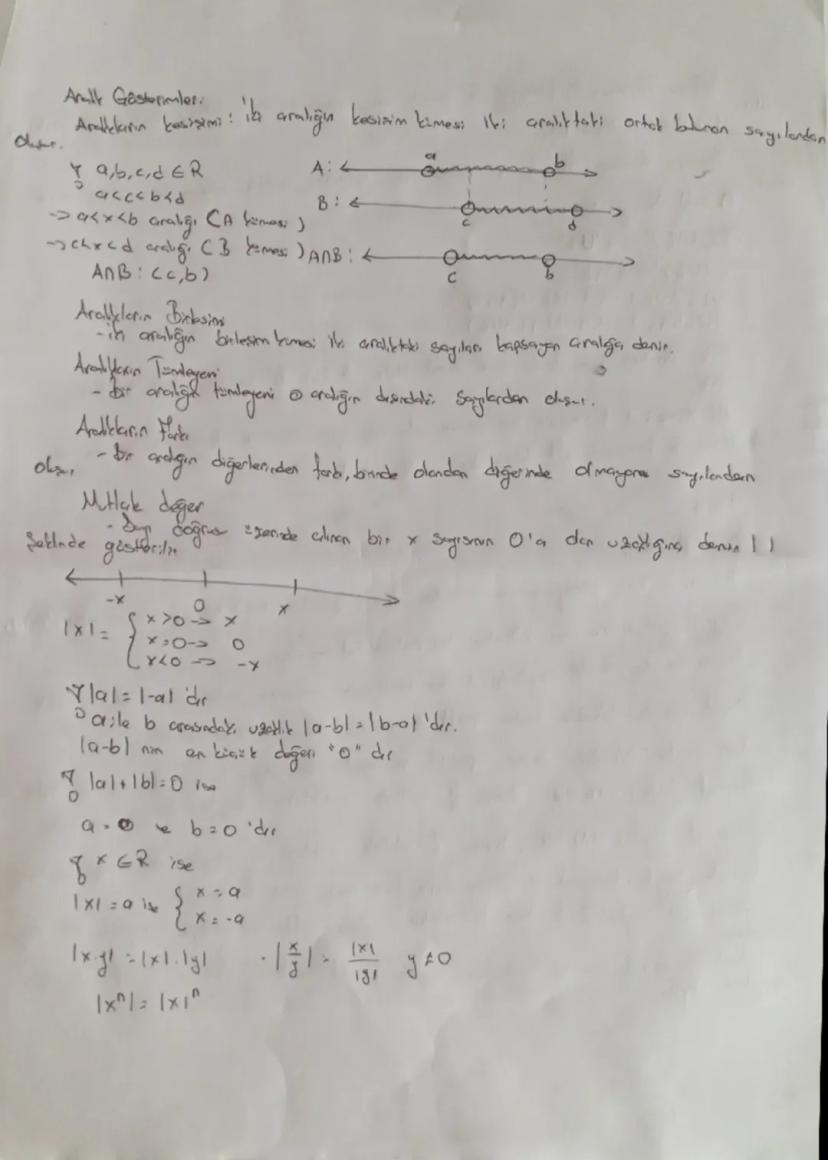 Aralık Gösterimleri:
Aralıkların kesişimi: iki aralığın kesişim kümesi iki aralıktaki ortak bulunan sayılardan
oluşur.
a,b,c,d ∈ R
a<c<b<d
A: a b
B: c d
-> a<x<b aralığı (A kümesi)
-> c<x<d aralığı (B kümesi)
A∩B: c b
A∩B: (c,b)
Aralıkların Birleşimi
- iki aralığın birleşim kümesi iki aralıktaki sayıları kapsayan aralığa denir.
Aralıkların Tümleyeni
- bir aralığın tümleyeni o aralığın dışındaki sayılardan oluşur.
Aralıkların Farkı
- bir aralığın diğerlerinden farkı, birinde olandan diğerinde olmayan sayılardan
oluşur.
Mutlak değer
- Sayı doğrusu üzerinde alınan bir x sayısının 0'a dan uzaklığına denir | |
şeklinde gösterilir
-x 0 x
|x| = { x>0 -> x
x=0 -> 0
x<0 -> -x
|a| = |-a| 'dır
a ile b arasındaki uzaklık |a-b| = |b-a| 'dır.
|a-b| nin en küçük değeri "0" dır
|a|+|b|=0 ise
a=0 ve b=0 'dır
x ∈ R ise
|x| = a ise { x = a
x = -a
|x.y| = |x|.|y| · |x/y| = |x|/|y| y≠0
|xⁿ| = |x|ⁿ